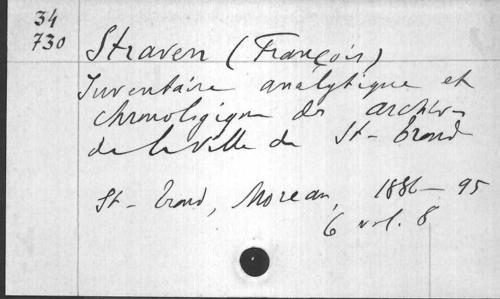 34
730
Straven (François)
Inventaire analytique et
chronologique des archives
de la ville de St-Trond
St-Trond, Moreau, 1886-95
6 vol. 8